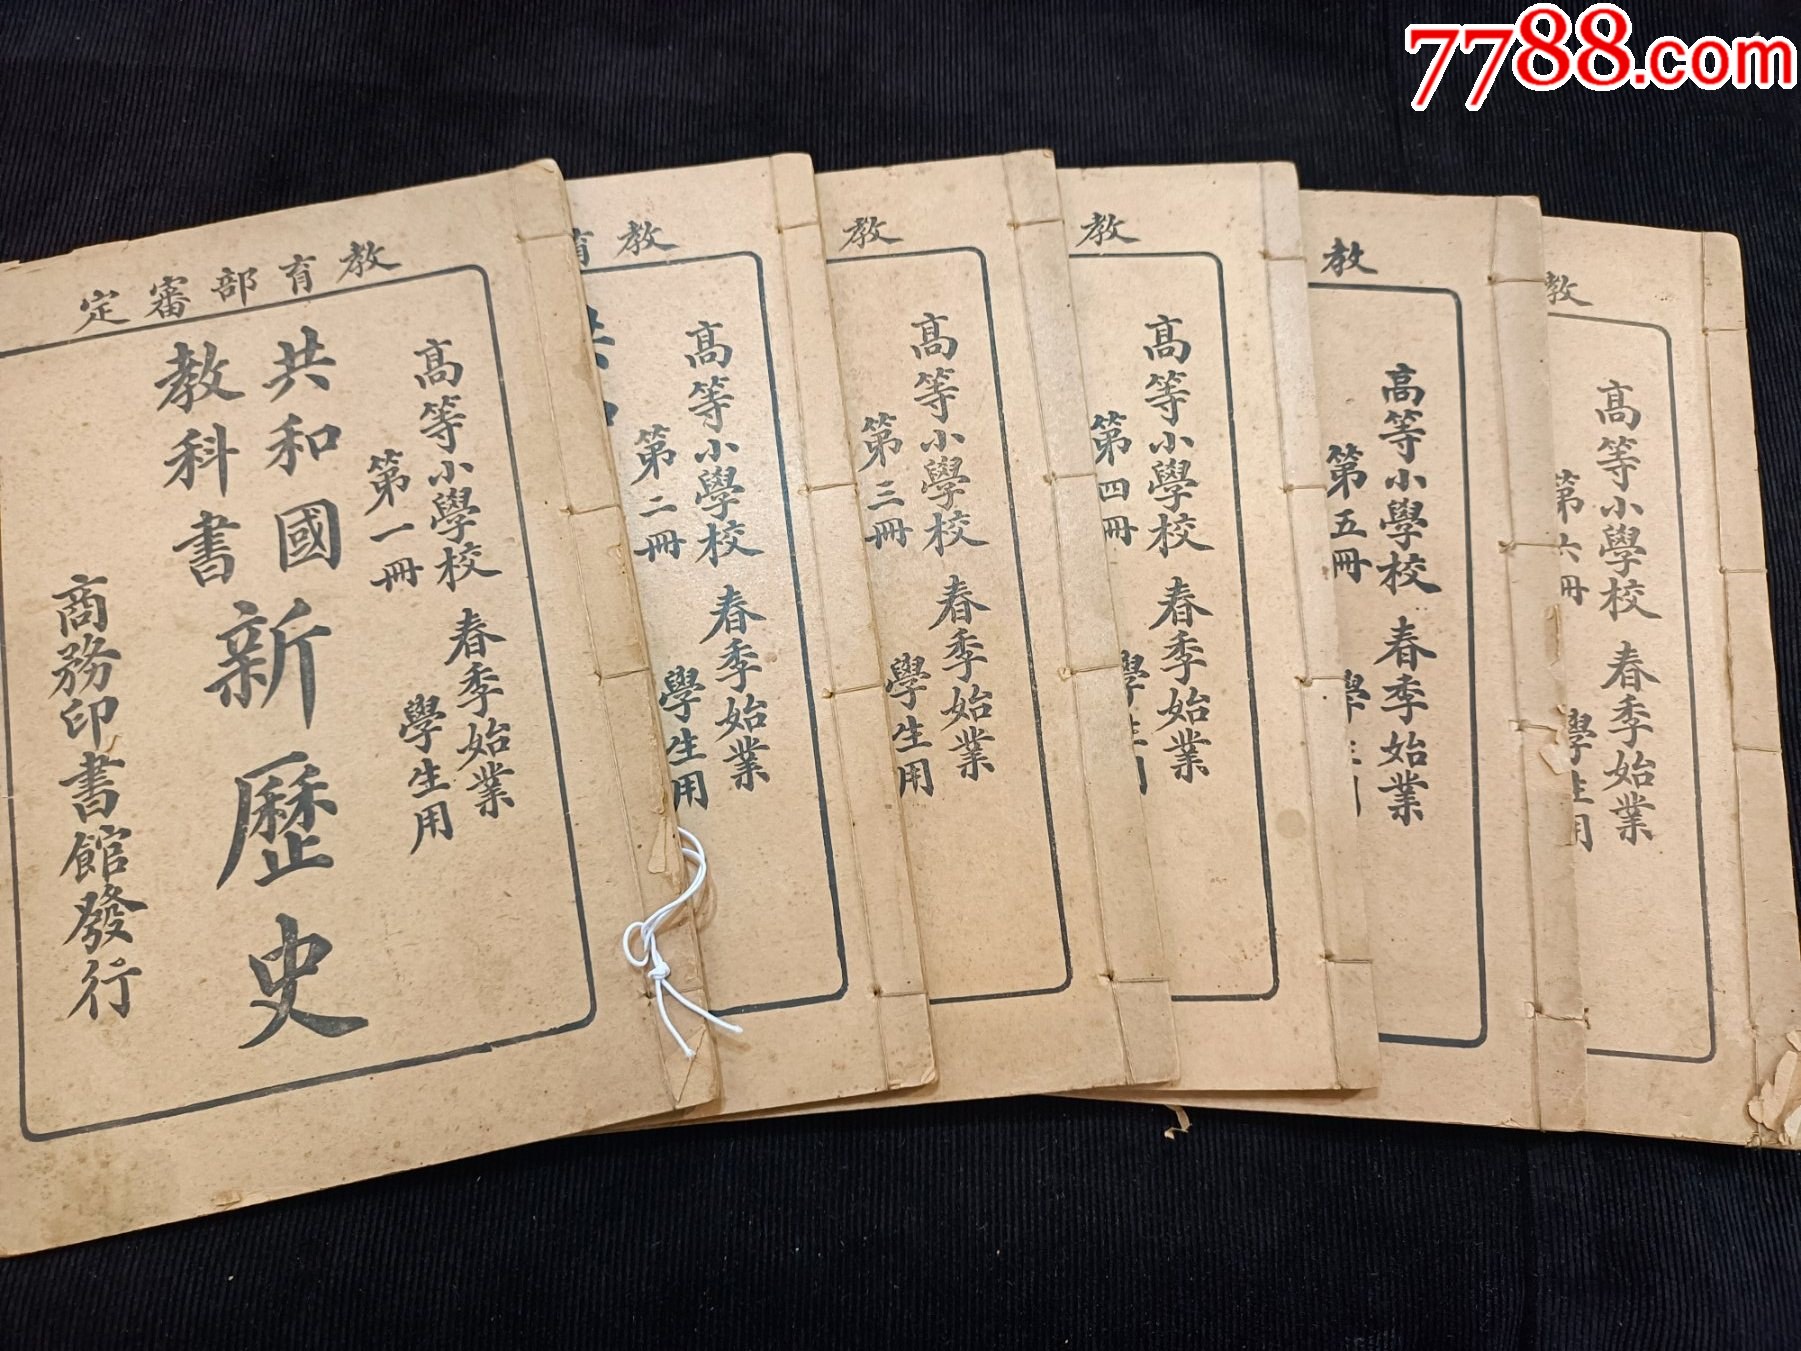 7788.com
教育部審定
高等小學校 春季始業
第一冊 學生用
共和國
教科書
新歷史
商務印書館發行
教育
高等小學校 春季始業
第二冊 學生用
共和
教
高等小學校 春季始業
第三冊 學生用
教
高等小學校 春季始業
第四冊 學生用
教
高等小學校 春季始業
第五冊 學生用
教
高等小學校 春季始業
第六冊 學生用